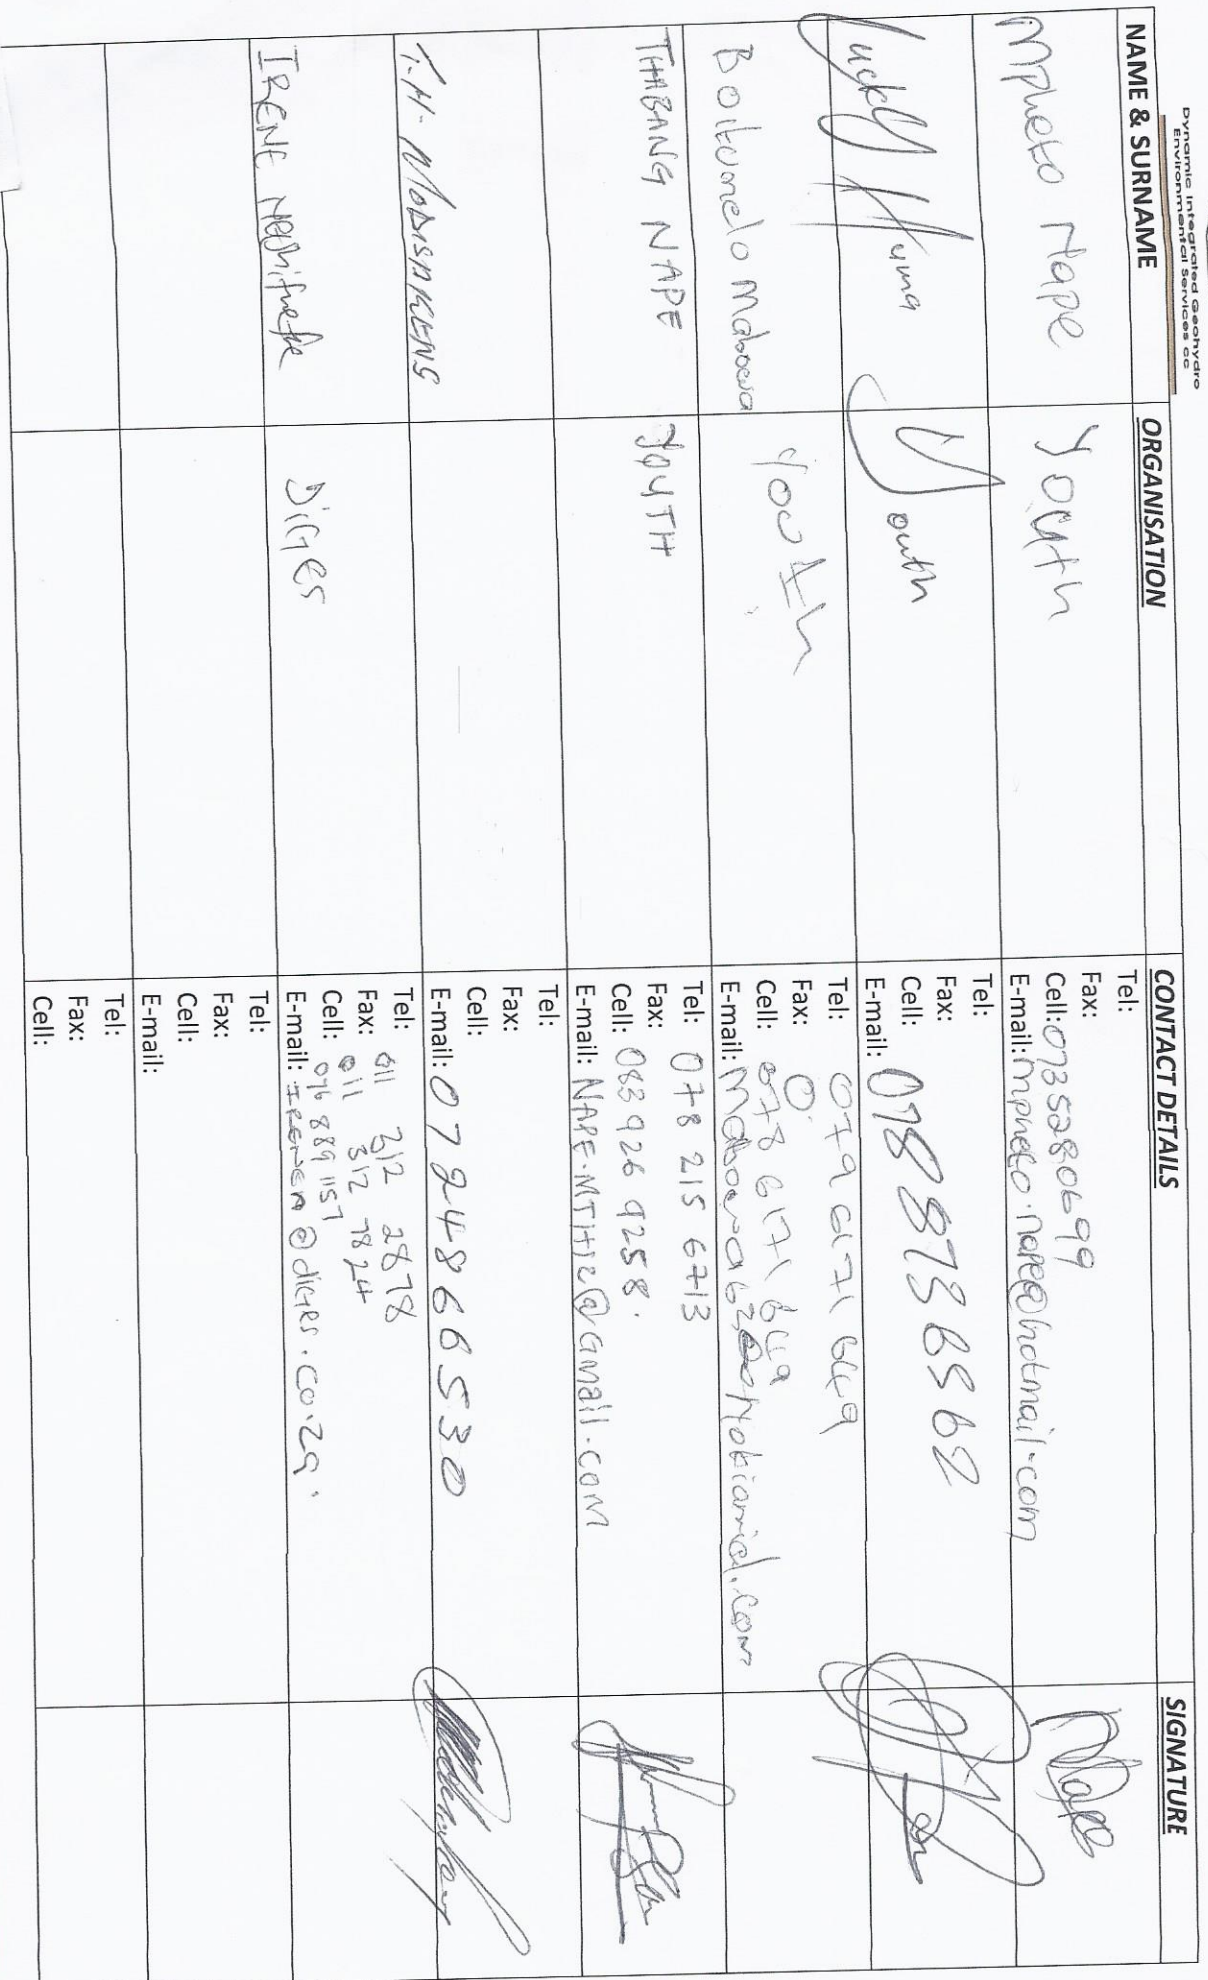 Dynamic Integrated Geohydro
Environmental Services cc
NAME & SURNAME ORGANISATION CONTACT DETAILS SIGNATURE
Mpheto Nape Youth
Tel:
Fax:
Cell: 0735280699
E-mail: mpheto.nape@hotmail.com
Lucky Huma Youth
Tel:
Fax:
Cell: 0788736562
E-mail:
Boitumelo Maboea Youth
Tel: 079 6171 649
Fax: 0
Cell: 078 6171 649
E-mail:
THABANG NAPE YOUTH
Tel: 078 215 6713
Fax:
Cell: 083 926 9258.
E-mail: NAPE.MTHIZ@GMAIL.COM
T.H. MODISAKENG
Tel:
Fax:
Cell:
E-mail: 0724866530
IRENE DIGES
Tel: 011 312 2878
Fax: 011 312 7824
Cell: 076 889 1157
E-mail: IRENEN@diges.co.za.
Tel:
Fax:
Cell:
E-mail:
Tel:
Fax:
Cell: